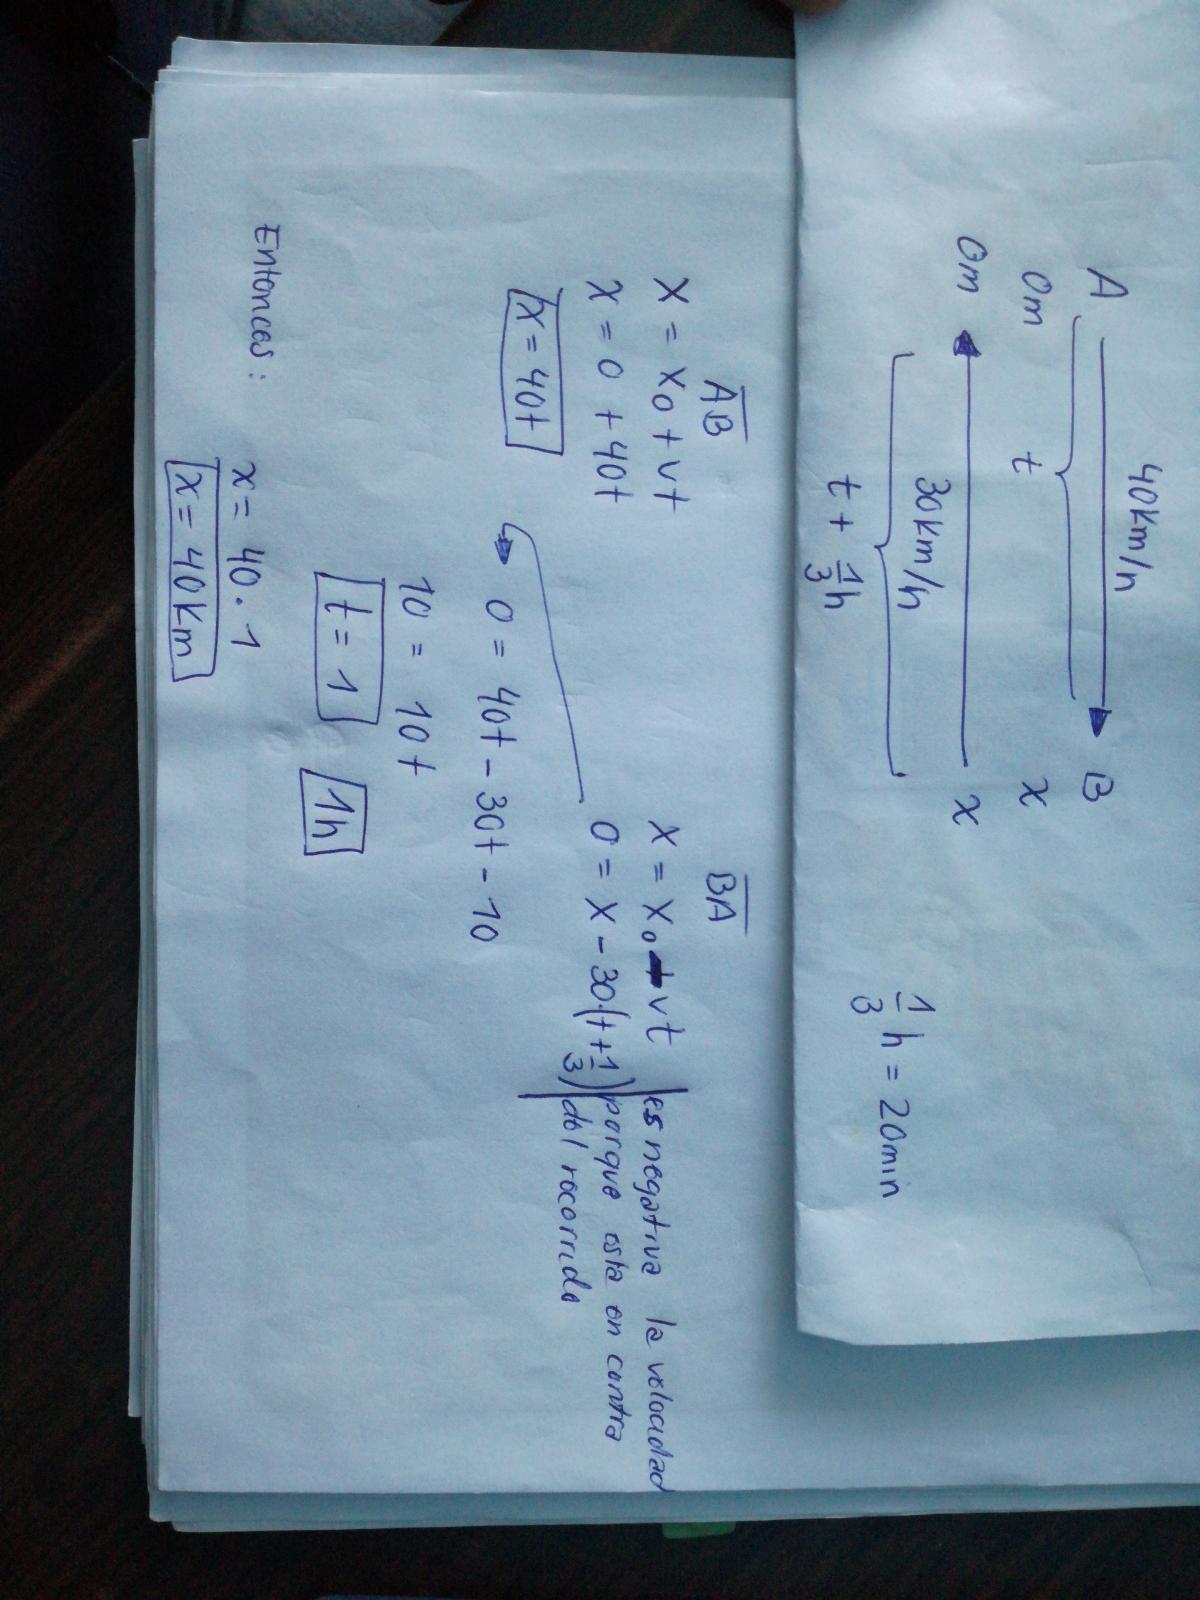 40km/h
A B
0m t x
0m x
30km/h
t + 1/3 h
1/3 h = 20min
AB
x = x0 + vt
x = 0 + 40t
x = 40t
BA
x = x0 + vt
0 = x - 30·(t + 1/3)
es negativa la velocidad
porque esta en contra
del recorrido
0 = 40t - 30t - 10
10 = 10t
t = 1
1h
Entonces:
x = 40 · 1
x = 40km